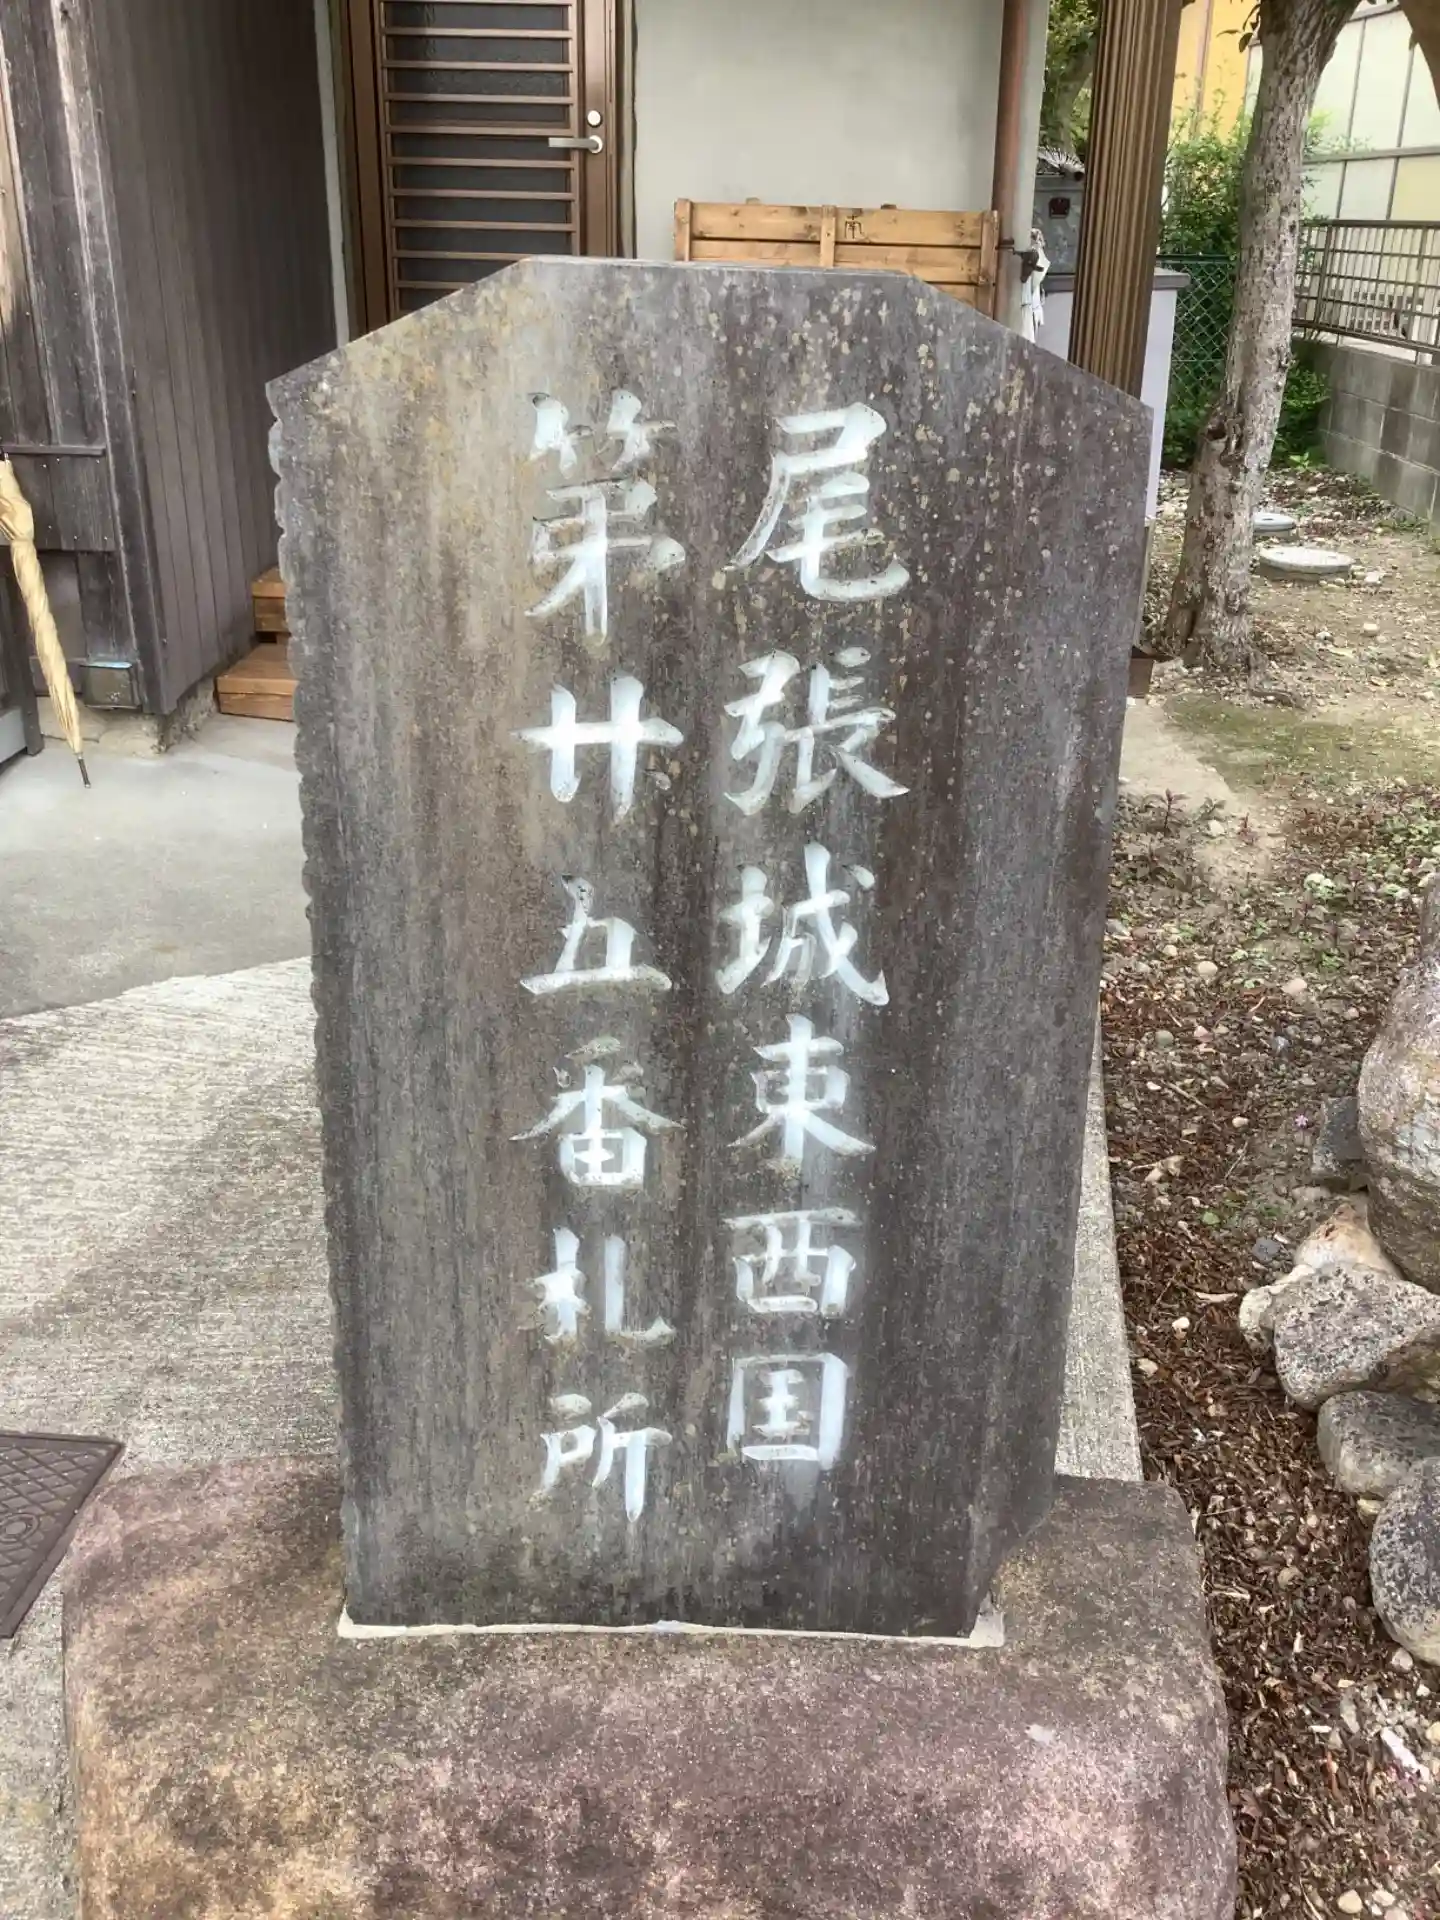 尾張城東西国
第廿五番札所
南